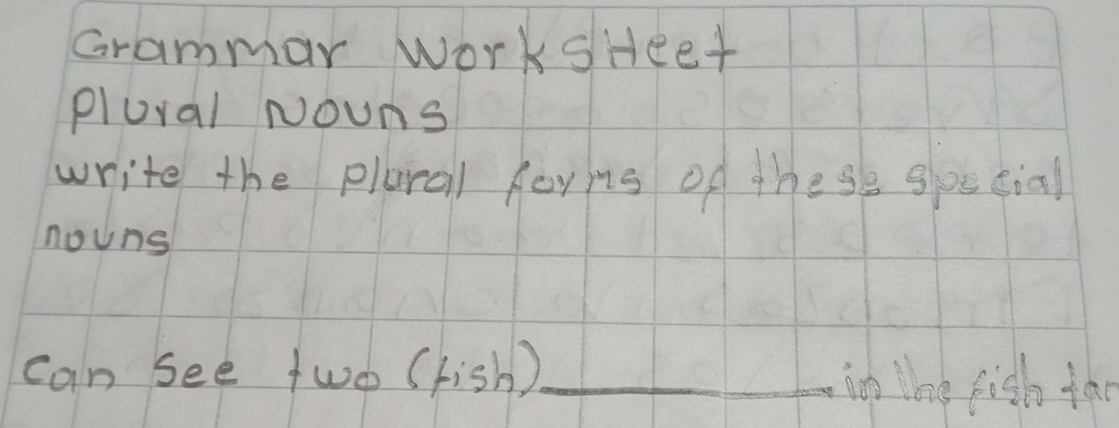 Grammar WorksHeet
Plural Nouns
write the plural forms of these special
nouns
can see two (fish)__________in the fish tan